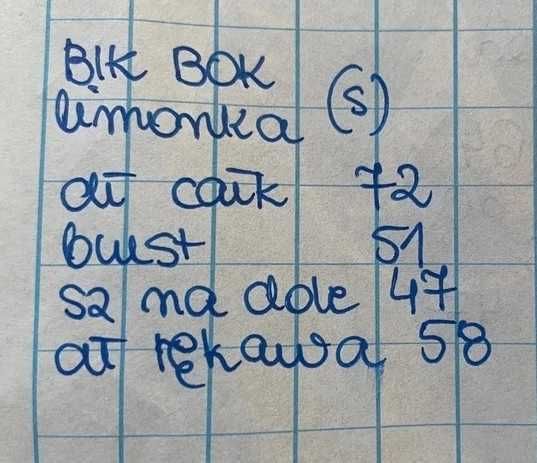 BIK BOK
limonka (s)
dł całk 72
biust 51
sz na dole 47
dł rękawa 58